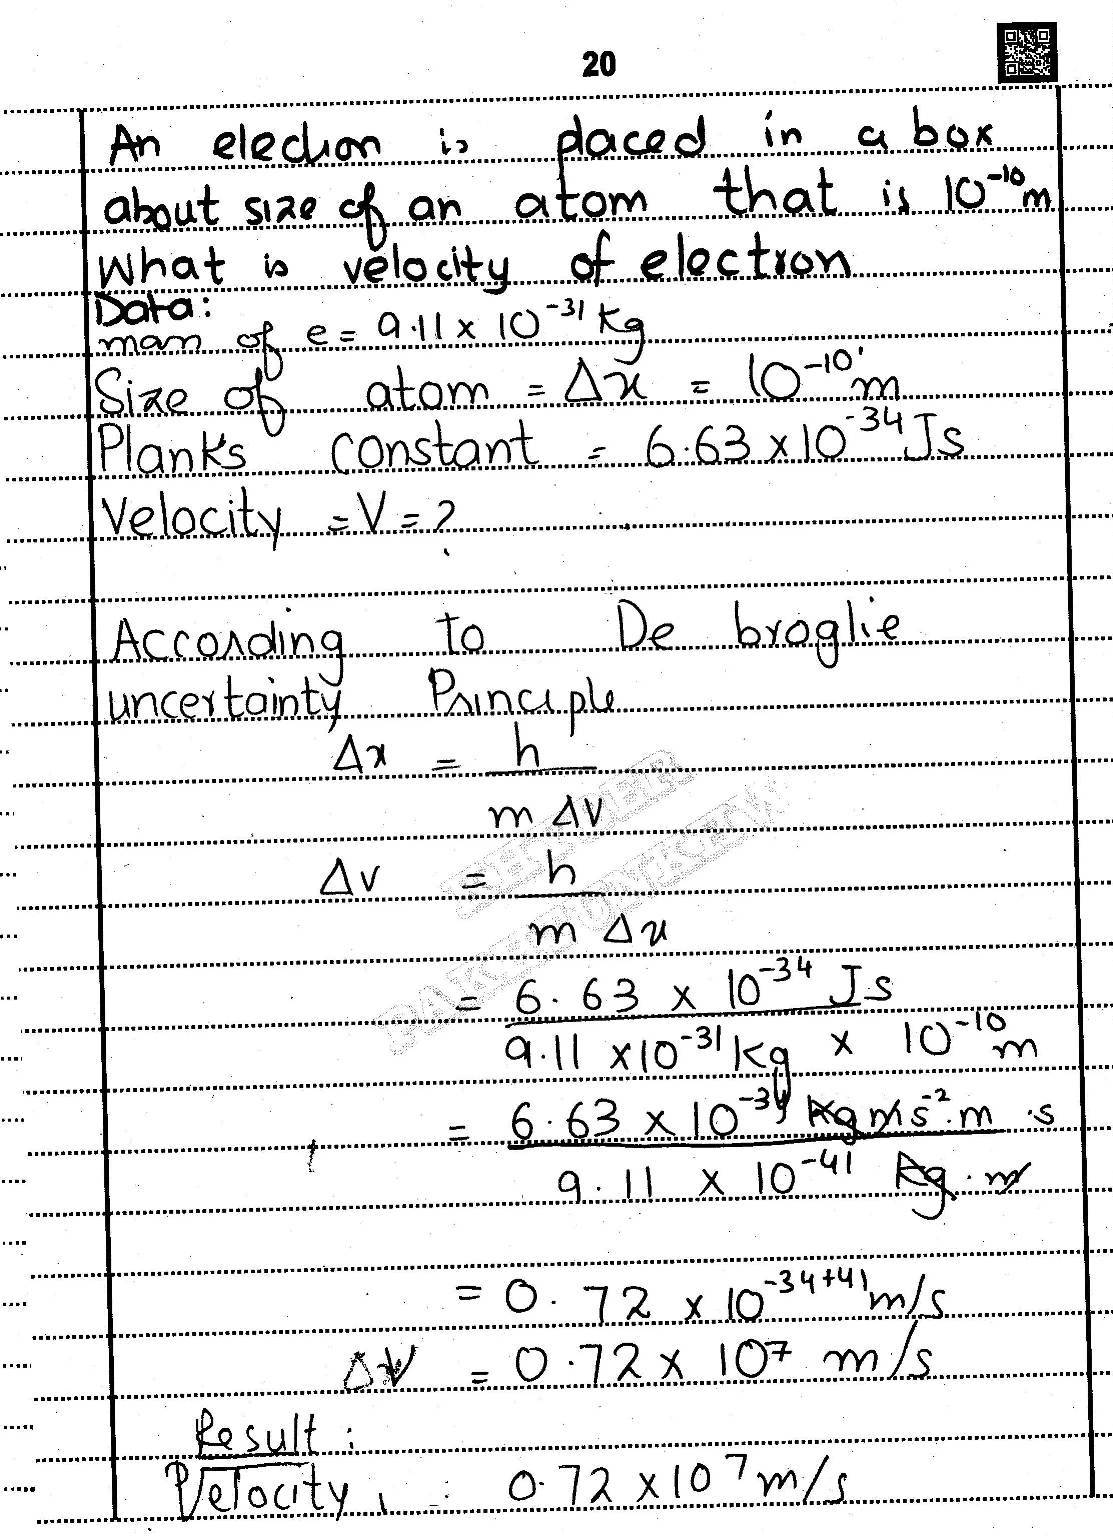 20
An electron is placed in a box
about size of an atom that is 10⁻¹⁰m
What is velocity of electron
Data:
mass of e = 9.11 x 10⁻³¹ Kg
Size of atom = Δx = 10⁻¹⁰ m
Planks constant = 6.63 x 10⁻³⁴ Js
Velocity = V = ?
According to De broglie
uncertainty Principle
Δx = h
m ΔV
Δv = h
m Δx
= 6.63 x 10⁻³⁴ Js
9.11 x 10⁻³¹ kg x 10⁻¹⁰ m
= 6.63 x 10⁻³⁴ kg m s⁻².m .s
9.11 x 10⁻⁴¹ kg . m
= 0.72 x 10⁻³⁴⁺⁴¹ m/s
ΔV = 0.72 x 10⁷ m/s
Result :
Velocity : 0.72 x 10⁷ m/s